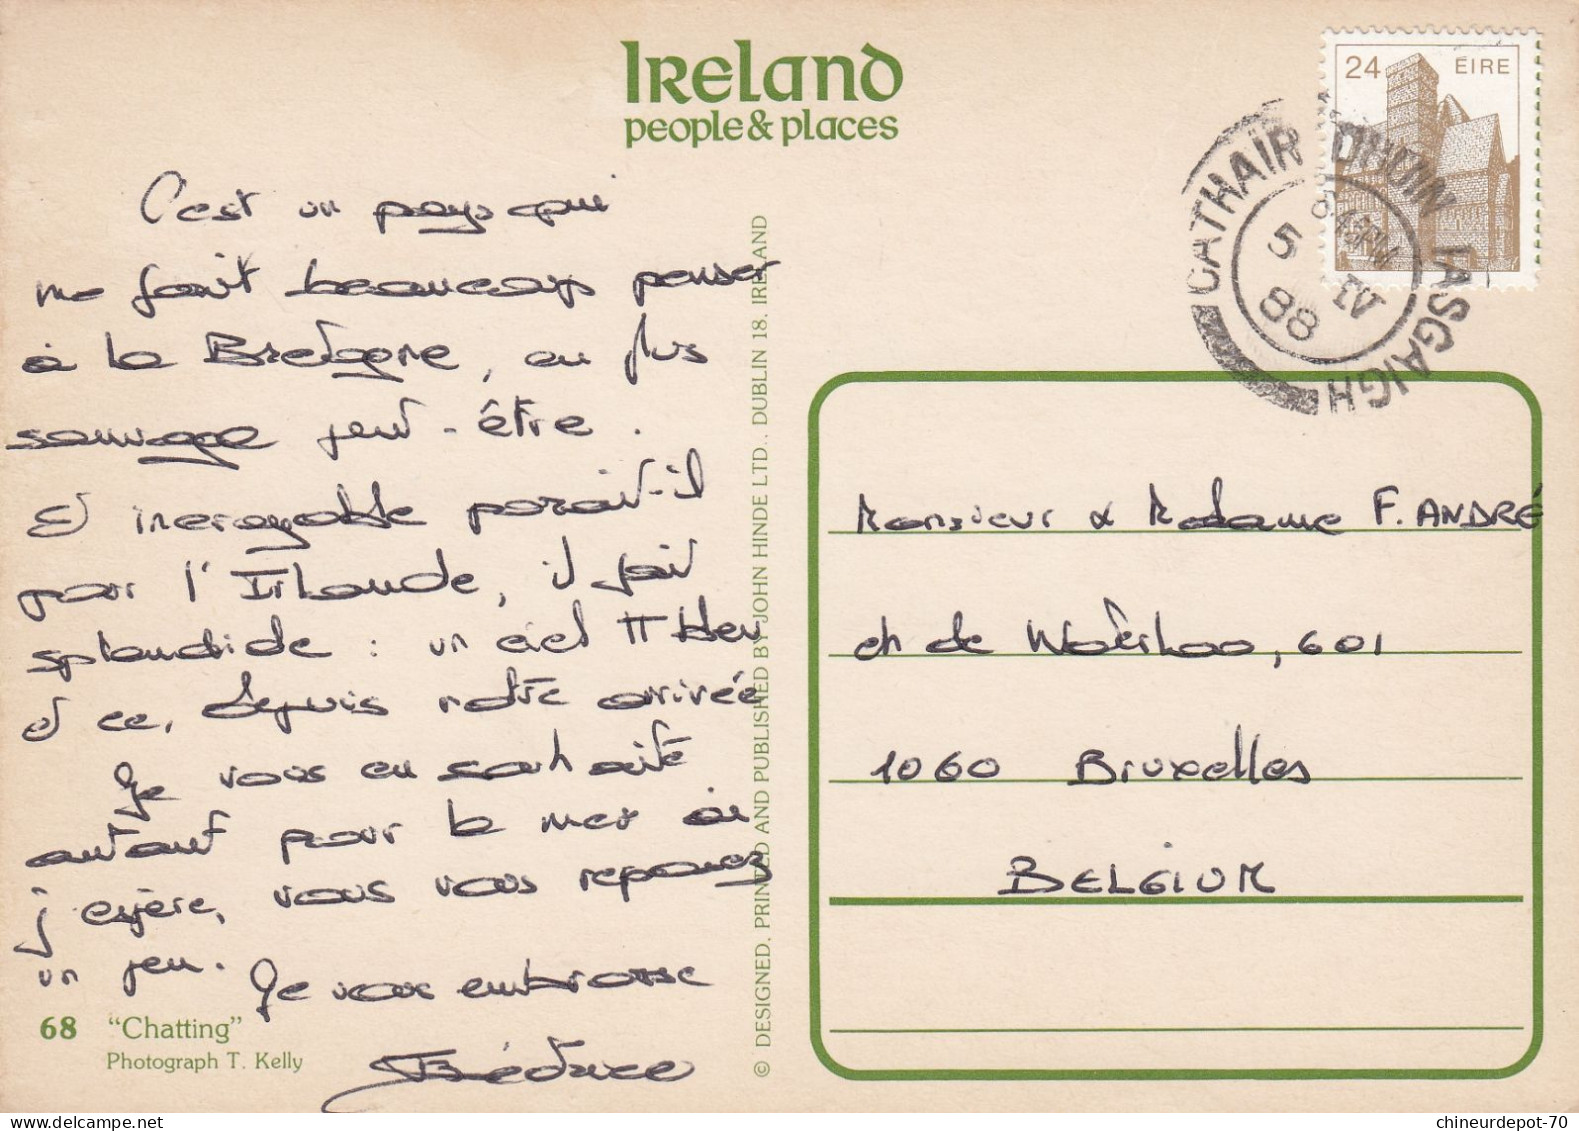 Ireland
people & places
24 ÉIRE
CATHAIR DHÚIN IASGAIGH
5 IV
88
C'est un pays qui
me fait beaucoup penser
à la Bretagne, en plus
sauvage peut-être.
Et incroyable parait-il
pour l'Irlande, il fait
splendide : un ciel tt bleu
et ce, depuis notre arrivée
Je vous en souhaite
autant pour la mer où
j'espère, vous vous reposez
un peu.
Je vous embrasse
68 "Chatting"
Photograph T. Kelly
© DESIGNED, PRINTED AND PUBLISHED BY JOHN HINDE LTD., DUBLIN 18, IRELAND
Monsieur & Madame F. ANDRÉ
ch de Waterloo, 601
1060 Bruxelles
BELGIUM
chineurdepot-70